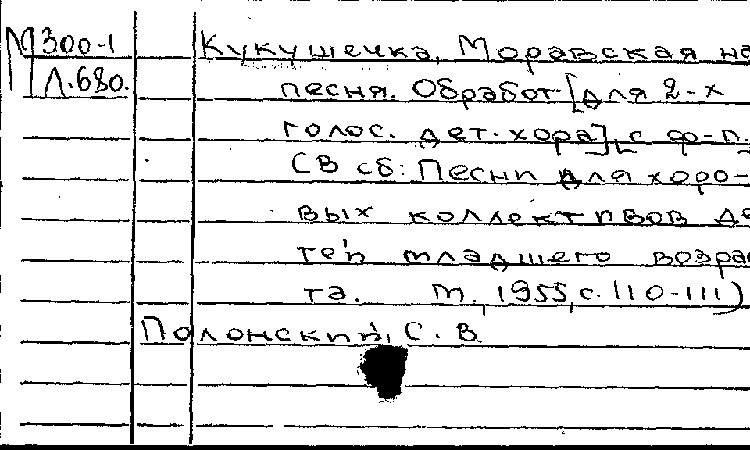 М 300-1 Кукушечка, Моравская на
Л.680. песня. Обработ[для 2-х
голос. дет. хора], с ф-п.
(В сб: Песни для хоро-
вых коллективов де
тей младшего возрас
та. М., 1955, с. 110-111)
Полонский, С. В.